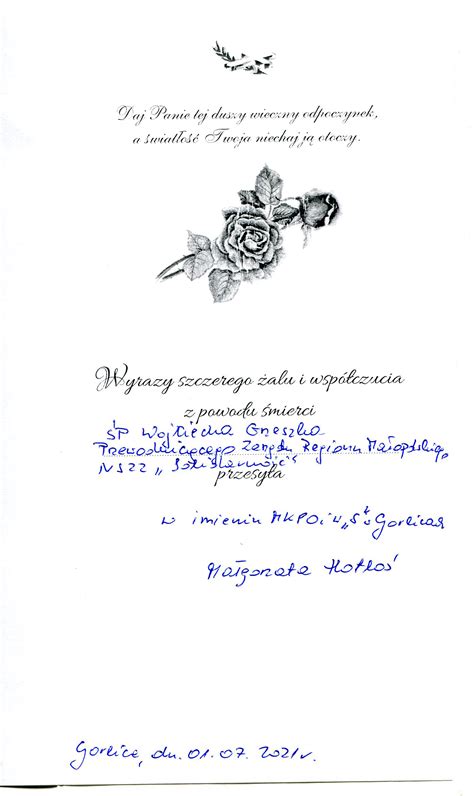 Daj Panie tej duszy wieczny odpoczynek,
a światłość Twoja niechaj ją otoczy.
Wyrazy szczerego żalu i współczucia
z powodu śmierci
ŚP Wojciecha Grzeszka
Przewodniczącego Zarządu Regionu Małopolskiego
NSZZ „Solidarność"
przesyła
w imieniu MKPOiW „S" Gorlicach
Małgorzata
Gorlice, dn. 01.07.2021r.